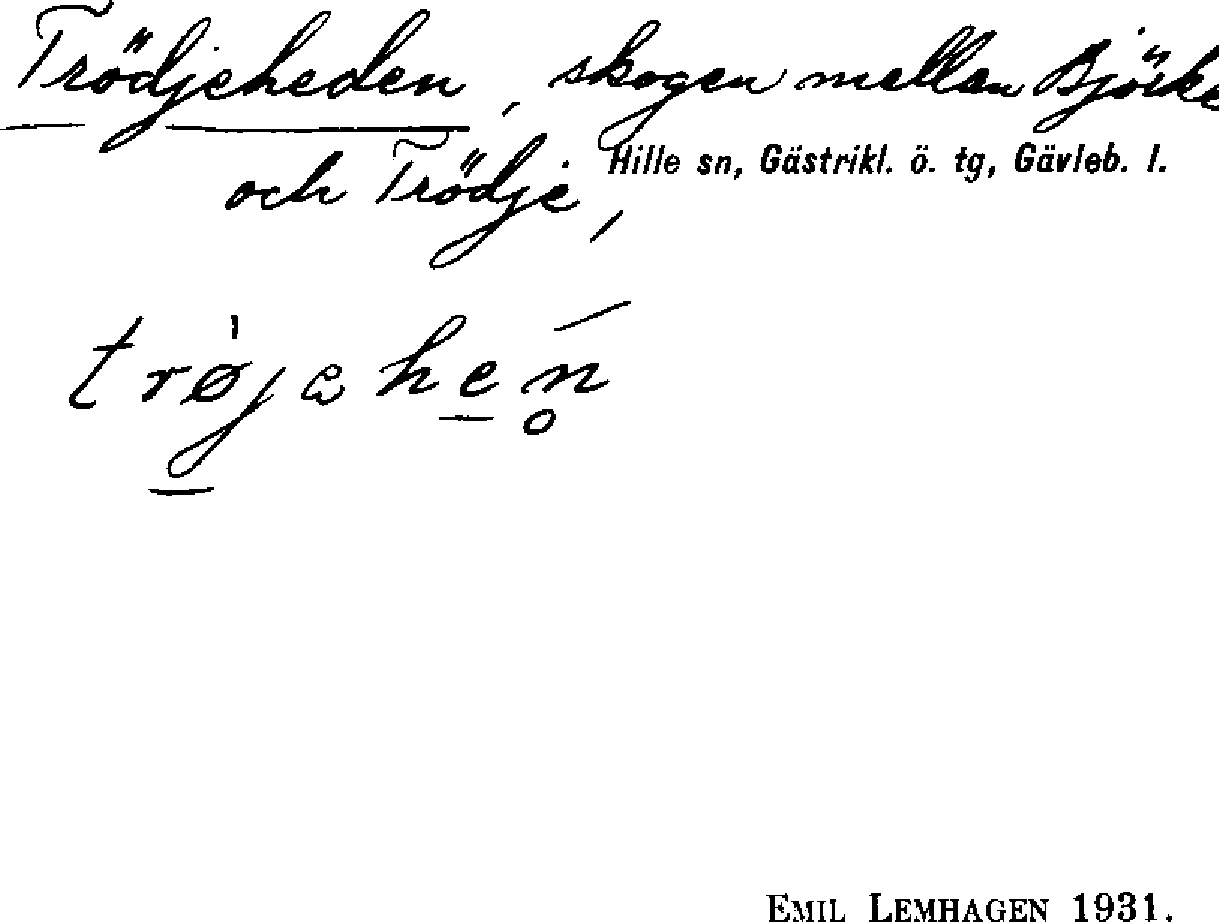 Trödjeheden, skogen mellan Björke
och Trödje,
Hille sn, Gästrikl. ö. tg, Gävleb. l.
EMIL LEMHAGEN 1931.